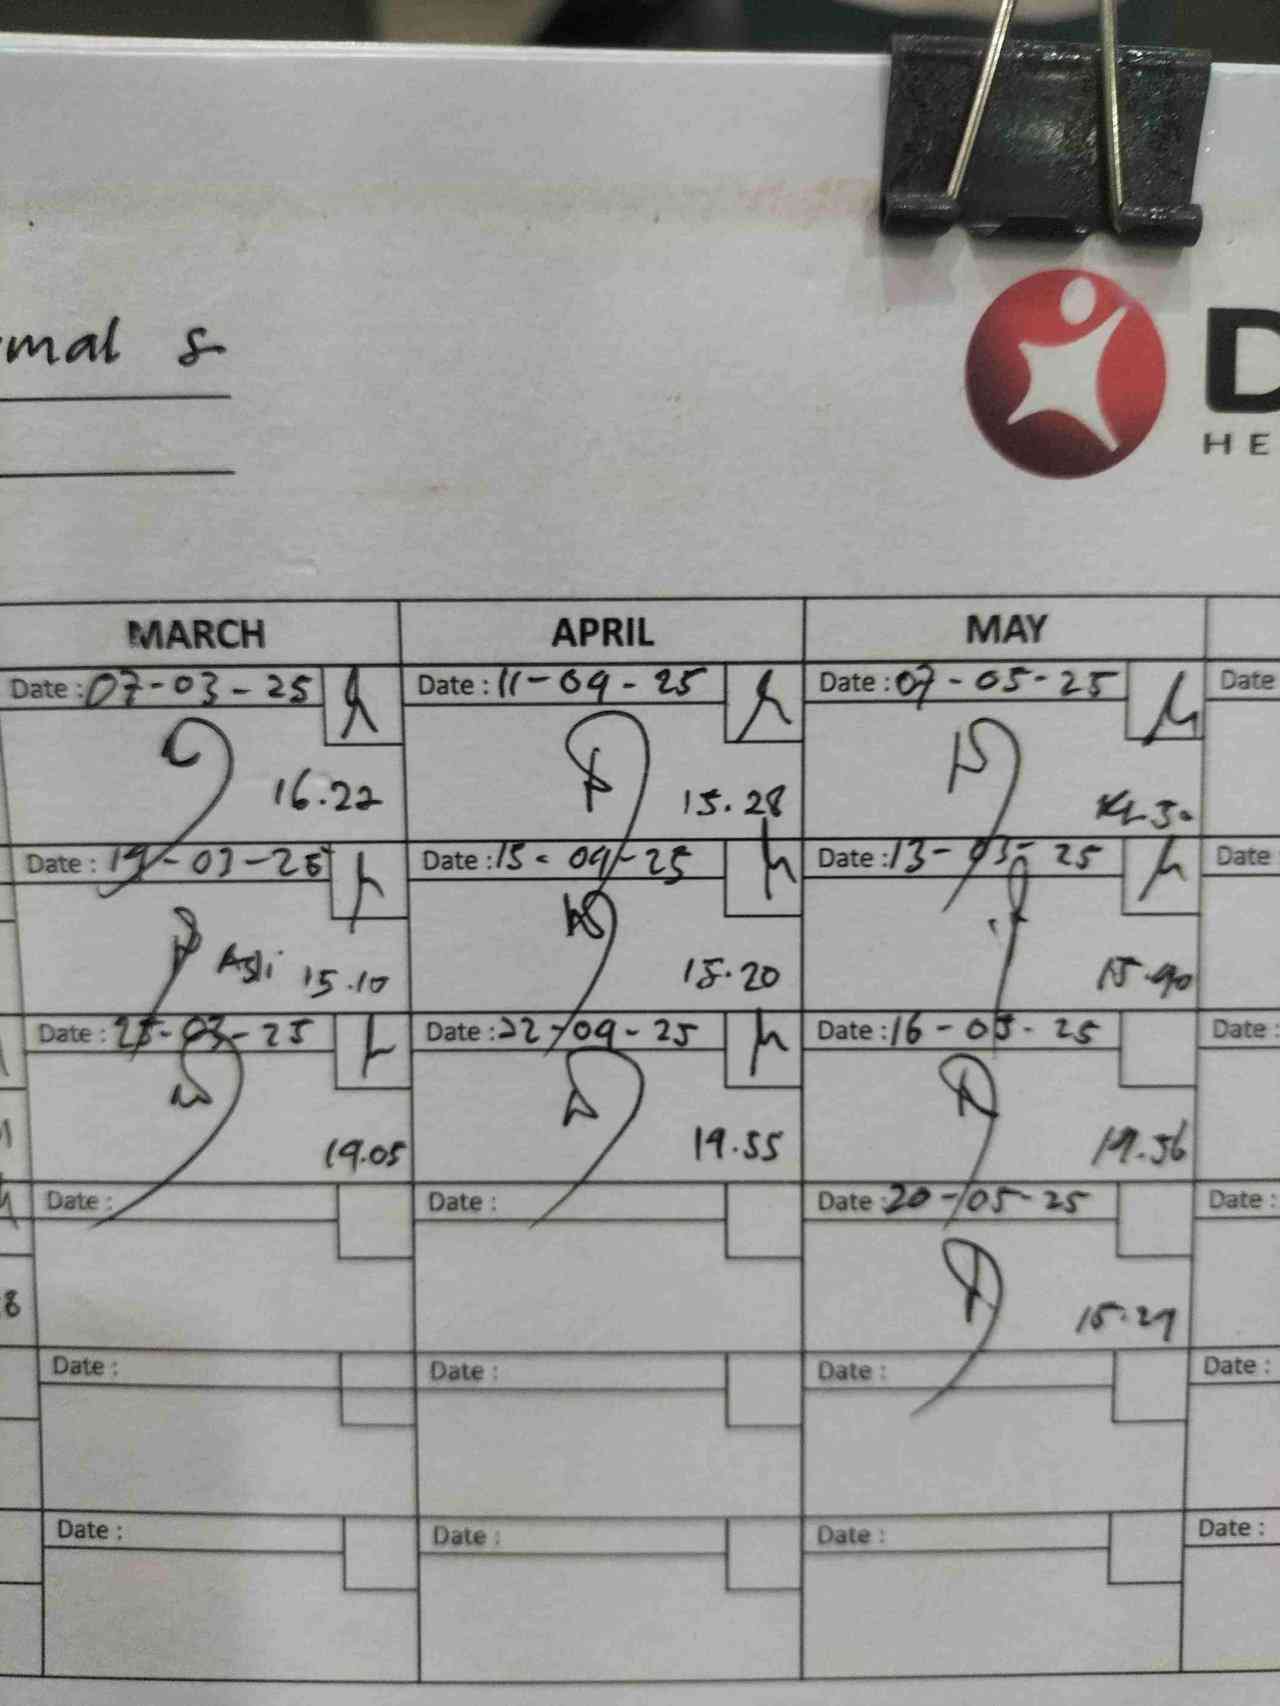 rmal S
D
HE
MARCH APRIL MAY
Date : 07-03-25 Date : 11-04-25 Date : 07-05-25 Date
16.22 15.28
Date : 19-03-25 Date : 15-04-25 Date : 13-05-25 Date
Asli 15.10 15.20 15.40
Date : 25-03-25 Date : 22-04-25 Date : 16-05-25 Date :
14.05 14.55 14.56
Date : Date : Date : 20-05-25 Date :
8
Date : Date : Date : Date :
Date : Date : Date : Date :